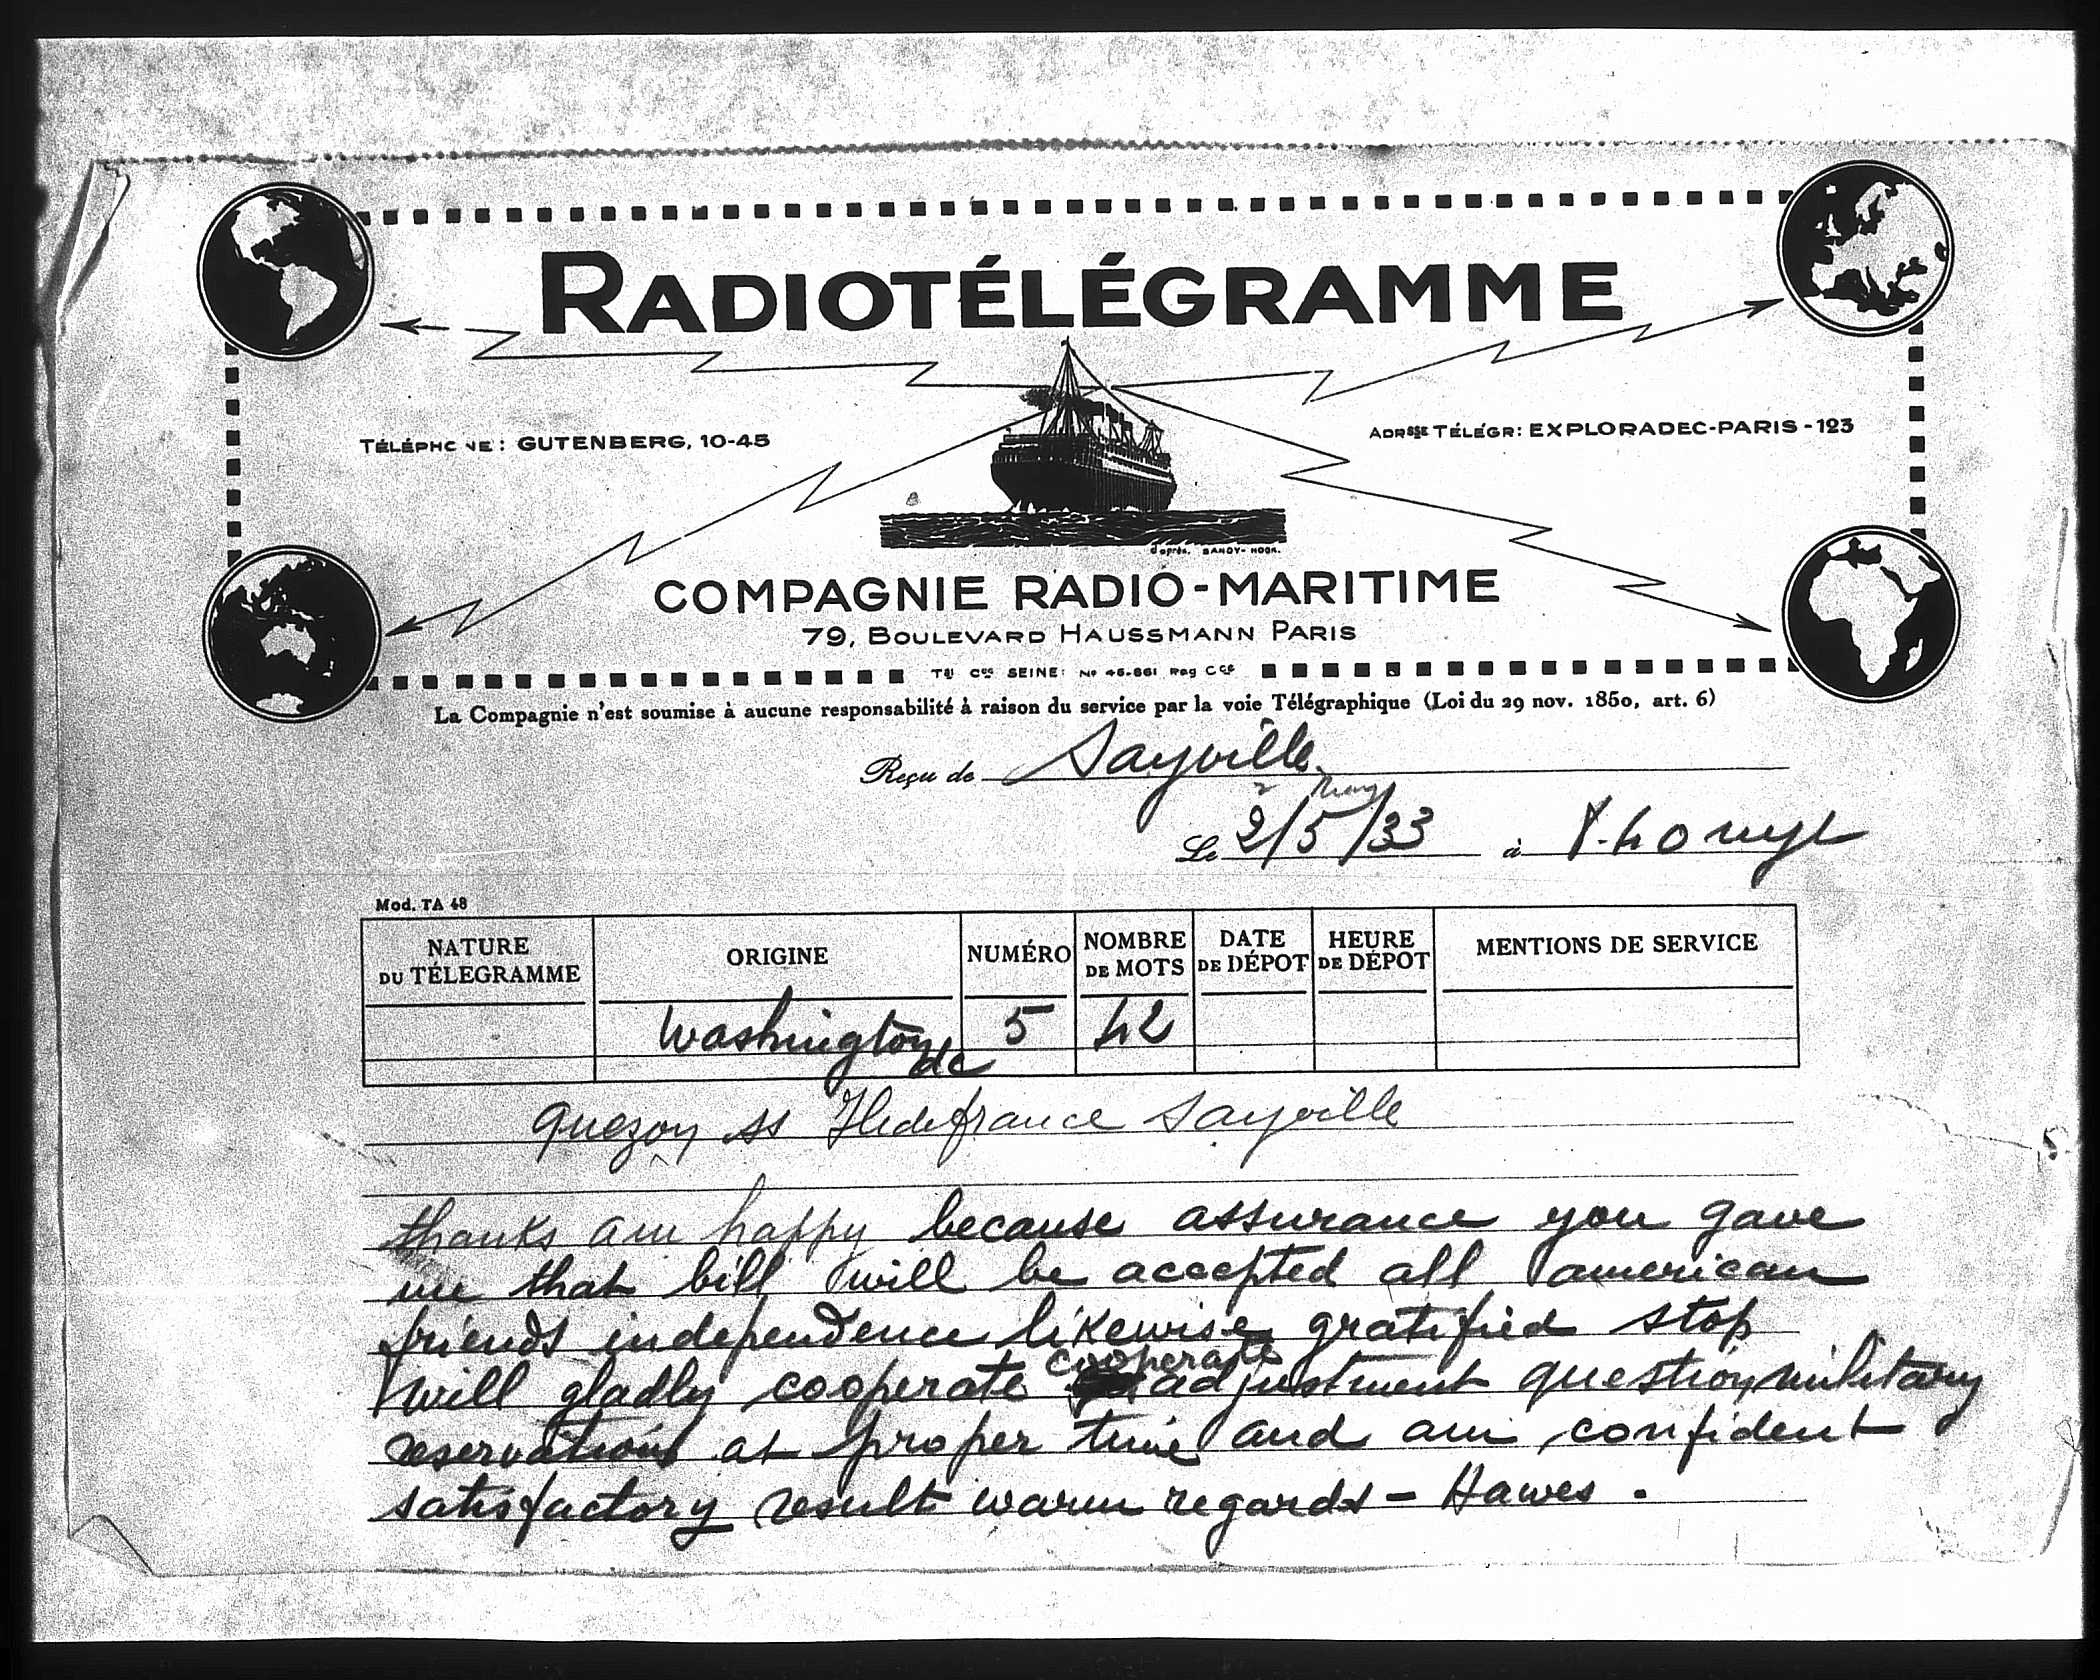 RADIOTÉLÉGRAMME
TÉLÉPHONE: GUTENBERG, 10-45
ADRSSE TÉLÉGR: EXPLORADEC-PARIS-123
d'après. SANDY-HOOK.
COMPAGNIE RADIO-MARITIME
79, BOULEVARD HAUSSMANN PARIS
SEINE: No 45.661 Reg Cce
La Compagnie n'est soumise à aucune responsabilité à raison du service par la voie Télégraphique (Loi du 29 nov. 1850, art. 6)
Reçu de Sayville
2 May
Le 2/5/33 à
Mod. TA 48
NATURE DU TÉLEGRAMME ORIGINE NUMÉRO NOMBRE DE MOTS DATE DE DÉPOT HEURE DE DÉPOT MENTIONS DE SERVICE
Washington dc 5 42
Quezon ss Iledefrance Sayville
thanks am happy because assurance you gave
me that bill will be accepted all american
friends independence likewise gratified stop
cooperate
will gladly cooperate adjustment question military
reservations at proper time and am confident
satisfactory results warm regards - Hawes.